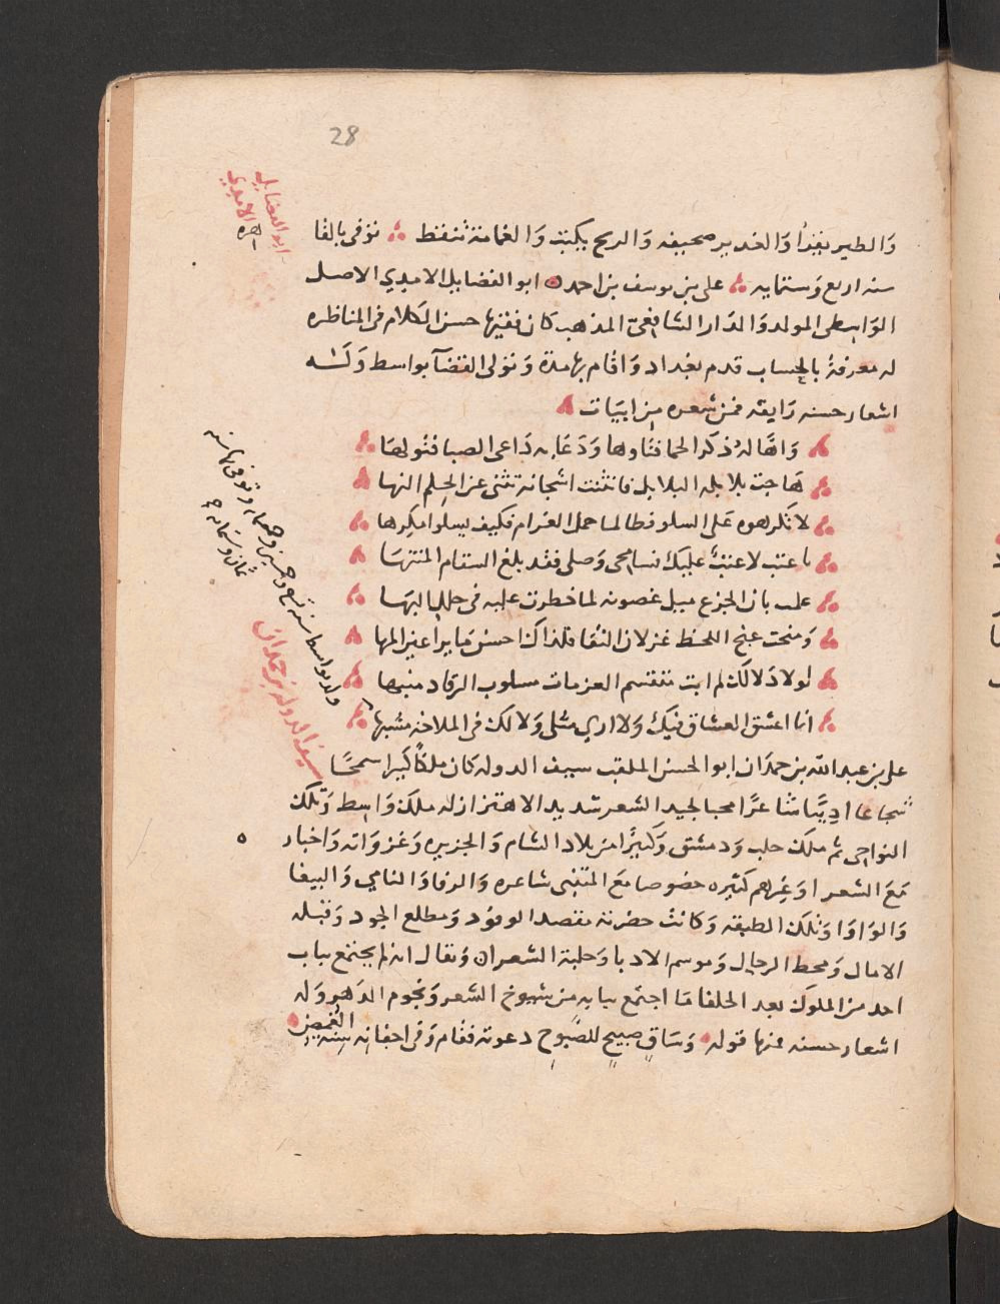 28
ابو الفضايل
الامدي
والطير يقرأ والغدير صحيفه والريح يكتب والغمامة تنقط توفي بالقا
سنه اربع وستمايه علي بن يوسف بن احمد ابو الفضايل الامدي الاصل
الواسطي المولد والدار الشافعي المذهب كان فقيها حسن الكلام في المناظره
له معرفة بالحساب قدم بغداد واقام بها مدة وتولى القضا بواسط وله
اشعار حسنه رايقه فمن شعره من ابيات
واها له ذكر الحما فتاوها ودعا به داعي الصبا فتولها
هاجت بلابله البلابل فانثنت اشجانه تثني عن الحلم النها
لا تكرهوه على السلو فطالما حمل الغرام فكيف يسلوا مكرها
يا عتب لا عتب عليك فسامحي وصلي فقد بلغ السقام المنتها
علمت بان الجزع ميل غصونه لما خطرت عليه في حلل البها
ومنحت غنج اللحظ غزلان النقا فلذاك احسن ما يرا عين المها
لولا دلالك لم ابت متقسم العزمات مسلوب الرقاد متيما
انا اعشق العشاق فيك ولا ارى مثلي ولا لك في الملاحة مشبها
ولد بواسط سنه تسع وخمسين وخمسمايه وتوفي بها سنه
ثمان وستمايه
سيف الدوله بن حمدان
علي بن عبد الله بن حمدان ابو الحسن الملقب سيف الدوله كان ملكا كبيرا سمحا
شجاعا اديبا شاعرا محبا لجيد الشعر شديد الاهتزاز له ملك واسط وتلك
النواحي ثم ملك حلب ودمشق وكثيرا من بلاد الشام والجزيره وغزواته واخبار
مع الشعرا وغيرهم كثيره خصوصا مع المتنبي شاعره والرفا والنامي والببغا
والواوا وتلك الطبقه وكانت حضرته مقصد الوفود ومطلع الجود وقبله
الامال ومحط الرحال وموسم الادبا وحلبة الشعرا ويقال انه لم يجتمع بباب
احد من الملوك بعد الخلفا ما اجتمع ببابه من شيوخ الشعر ونجوم الدهر وله
اشعار حسنه منها قوله وساق صبيح للصبوح دعوته فقام وفي اجفانه سنة الغمض